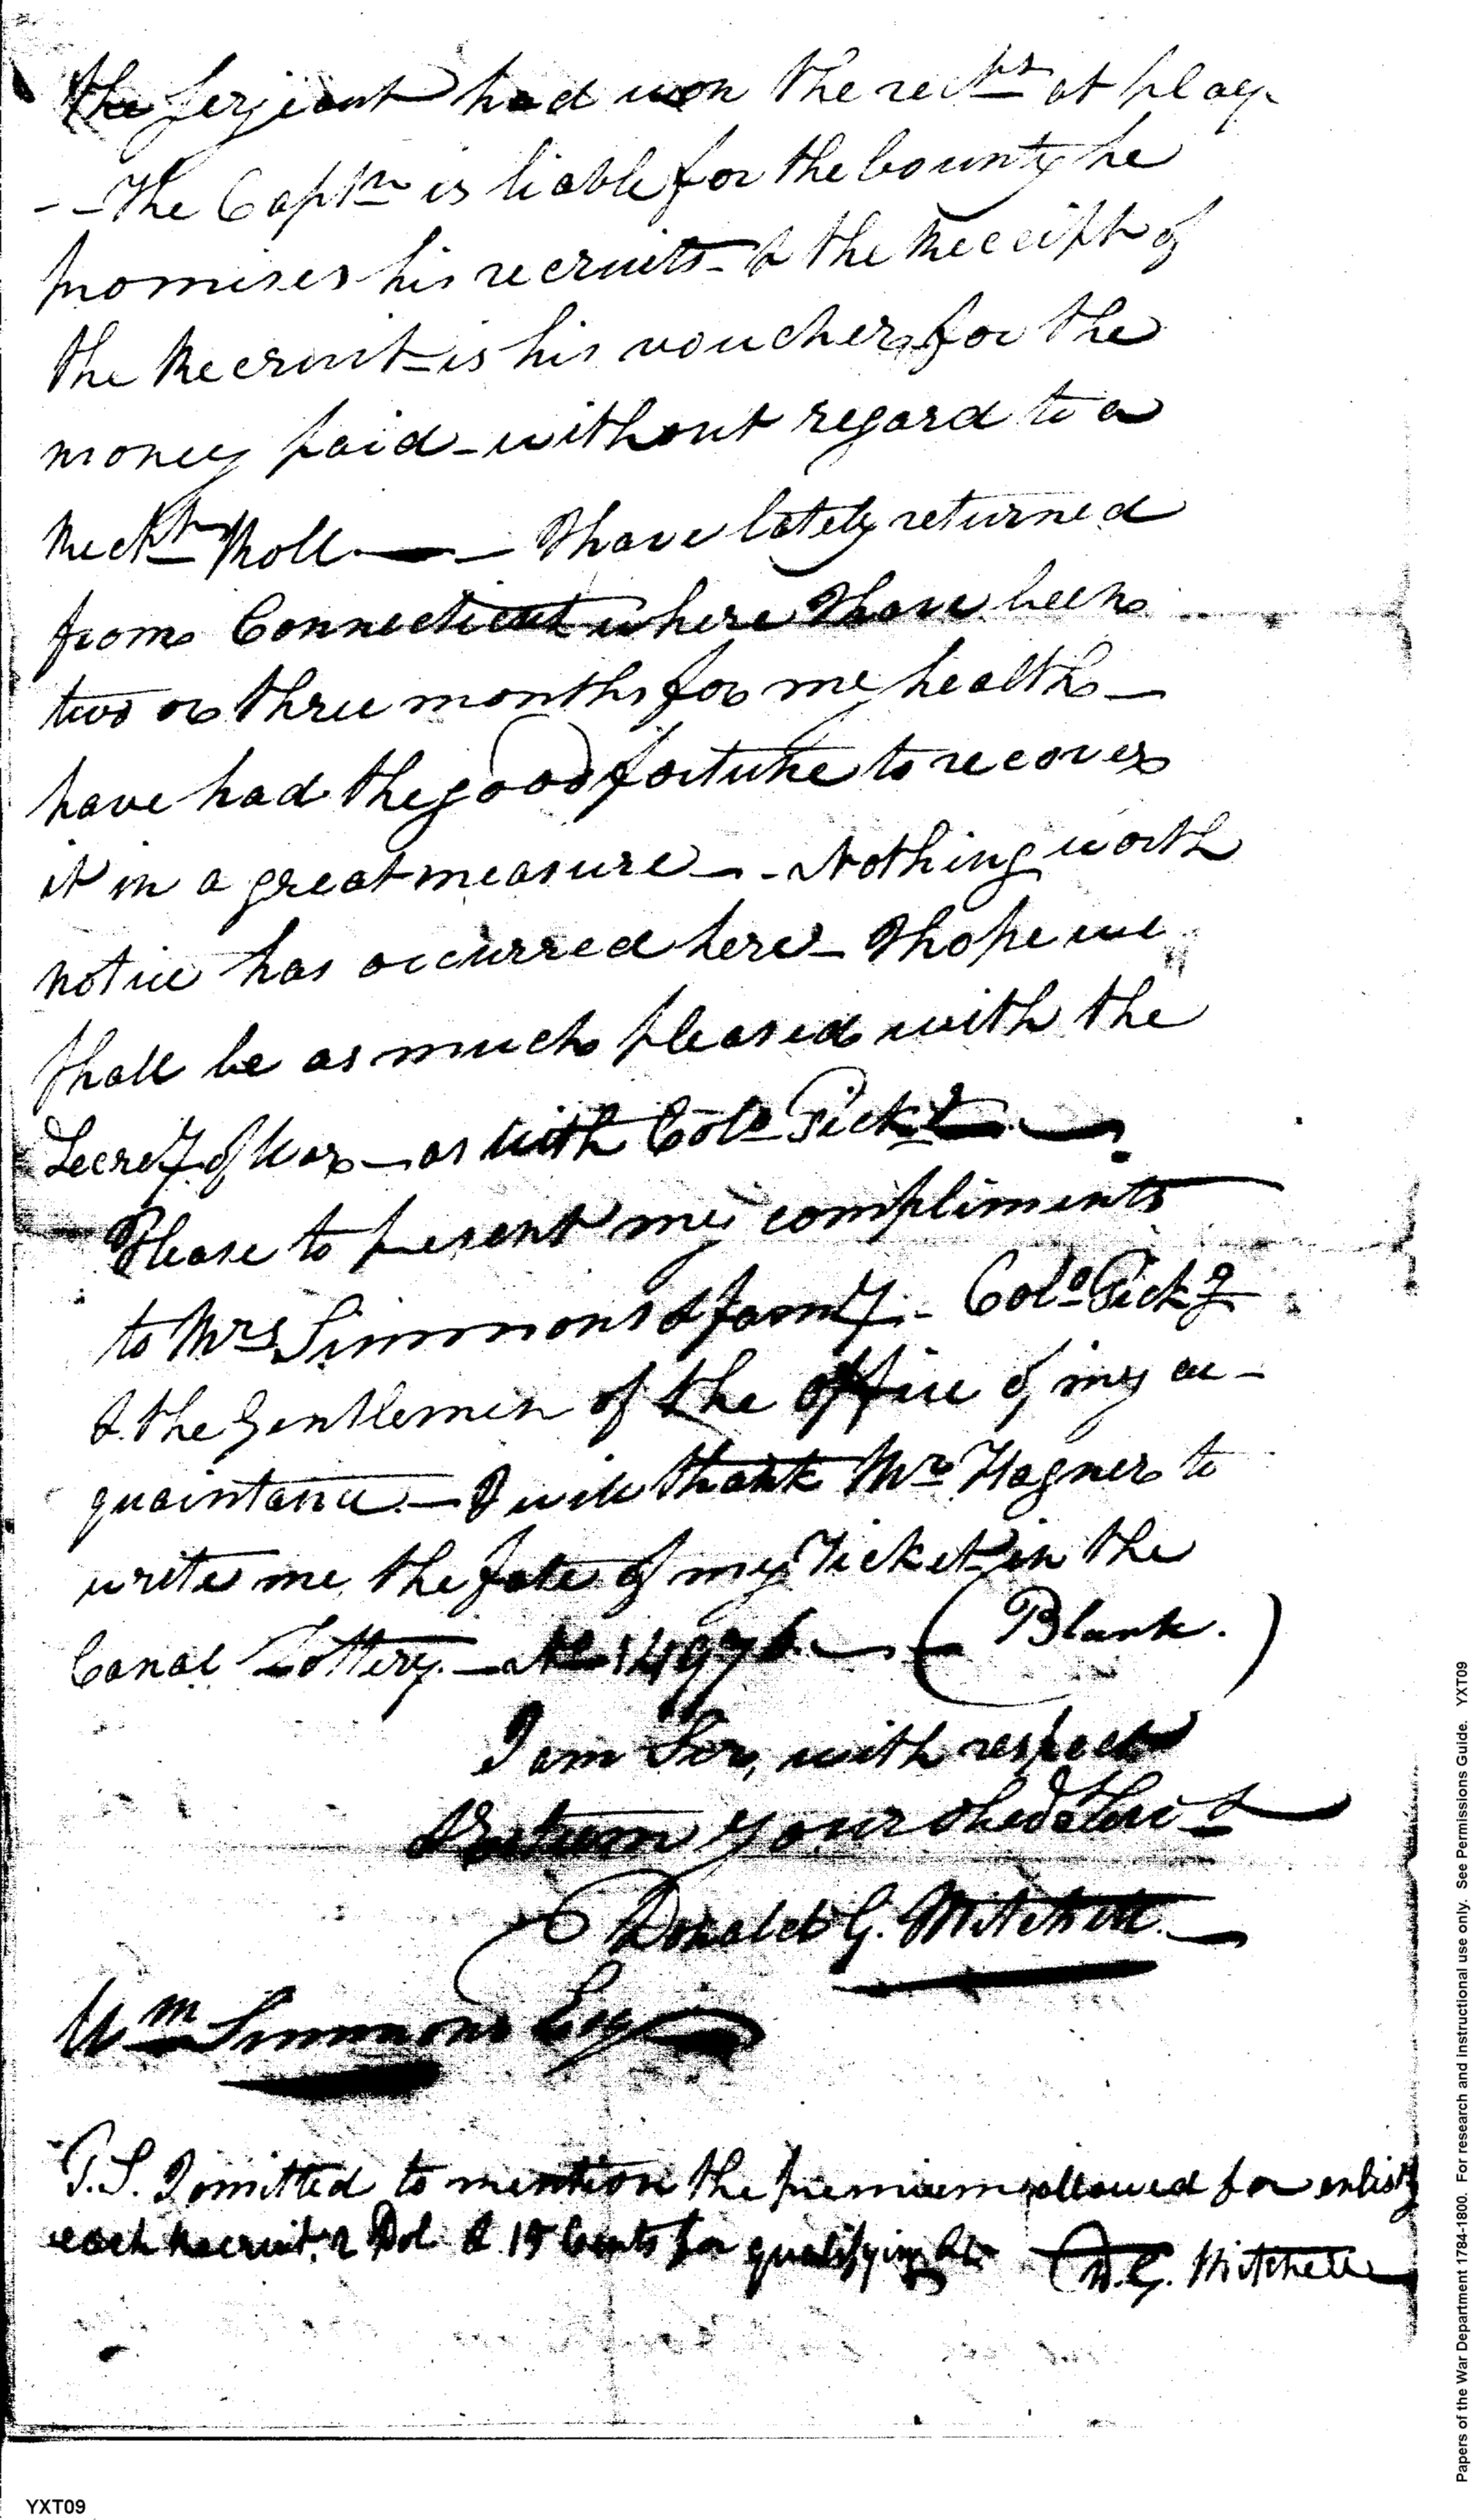 the Serjeant had won the recpts at play
-- The Captn is liable for the bounty he
promises his recruits - & the Receipt of
the Recruit - is his voucher, for the
money paid - without regard to a
Rect Roll —— I have lately returned
from Connecticut where I have been
two or three months for my health —
have had the good fortune to recover
it in a great measure - - Nothing worth
notice has occurred here - I hope we
shall be as much pleased with the
Secrety of War - as with Colo Pickg
Please to present my compliments
to Mrs Simmons & famy. - Colo Pickg
& the Gentlemen of the Office of my ac-
quaintance. - I will thank Mr Hagner to
write me, the fate of my Ticket in the
Canal Lottery. - No 14976. - (Blank.)
I am Sir, with respect
& Esteem your obed
Donald G. Mitchell.
Wm Simmons Esq
P.S. I omitted to mention the premium allowed for enlistg
each Recruit. 2 Dol. & 15 Cents for qualifying
D.G. Mitchell
Papers of the War Department 1784-1800. For research and instructional use only. See Permissions Guide. YXT09
YXT09